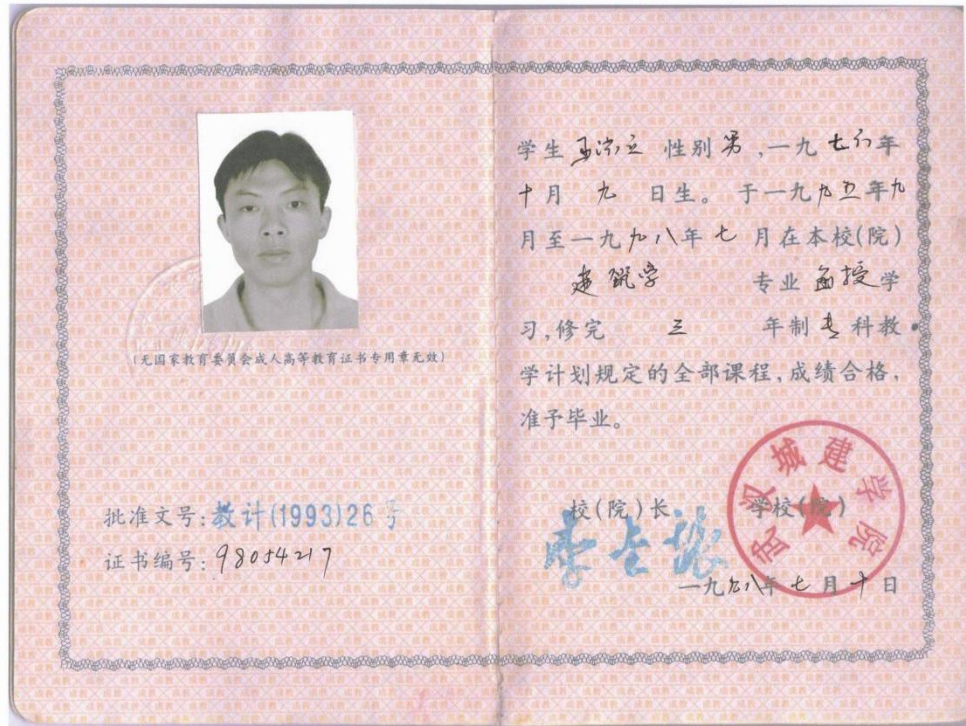 (无国家教育委员会成人高等教育证书专用章无效)
批准文号:教计(1993)26号
证书编号:98054217
学生 性别 男,一九七六年
十月 九 日生。于一九九五年九
月至一九九八年七月在本校(院)
建筑学 专业 函授学
习,修完 三 年制专科教
学计划规定的全部课程,成绩合格,
准予毕业。
校(院)长 学校(院)
武汉城建学院
一九九八年七月十日